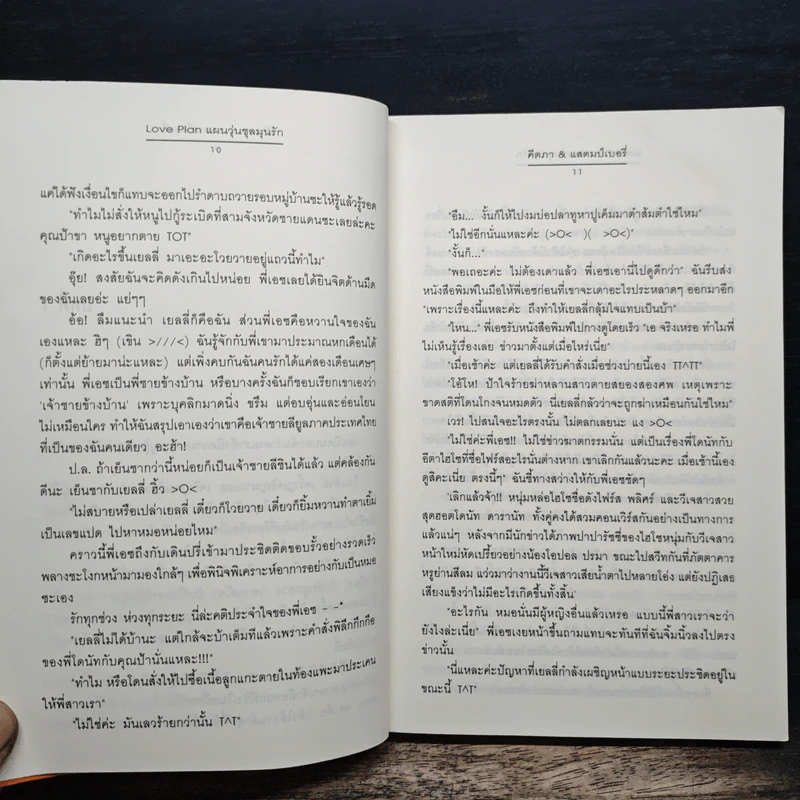 Love Plan แผนวุ่นชุลมุนรัก
10
แค่ได้ฟังเงื่อนไขก็แทบจะออกไปรำดาบถวายรอบหมู่บ้านซะให้รู้แล้วรู้รอด
"ทำไมไม่สั่งให้หนูไปกู้ระเบิดที่สามจังหวัดชายแดนซะเลยล่ะคะ
คุณป๋าขา หนูอยากตาย TOT"
"เกิดอะไรขึ้นเยลลี่ มาเอะอะโวยวายอยู่แถวนี้ทำไม"
อุ๊ย! สงสัยฉันจะคิดดังเกินไปหน่อย พี่เอซเลยได้ยินจิตด้านมืด
ของฉันเลยอ่ะ แย่ๆๆ
อ้อ! ลืมแนะนำ เยลลี่ก็คือฉัน ส่วนพี่เอซคือหวานใจของฉัน
เองแหละ ฮิๆ (เขิน >///<) ฉันรู้จักกับพี่เขามาประมาณหกเดือนได้
(ก็ตั้งแต่ย้ายมาน่ะแหละ) แต่เพิ่งคบกันฉันคนรักได้แค่สองเดือนเศษๆ
เท่านั้น พี่เอซเป็นพี่ชายข้างบ้าน หรือบางครั้งฉันก็ชอบเรียกเขาเองว่า
'เจ้าชายข้างบ้าน' เพราะบุคลิกมาดนิ่ง ขรึม แต่อบอุ่นและอ่อนโยน
ไม่เหมือนใคร ทำให้ฉันสรุปเอาเองว่าเขาคือเจ้าชายลียูลภาคประเทศไทย
ที่เป็นของฉันคนเดียว อะฮ้า!
ป.ล. ถ้าเย็นชากว่านี้หน่อยก็เป็นเจ้าชายลีชินได้แล้ว แต่คล้องกัน
ดีนะ เย็นชากับเยลลี่ ฮิ้ว >O<
"ไม่สบายหรือเปล่าเยลลี่ เดี๋ยวก็โวยวาย เดี๋ยวก็ยิ้มหวานทำตาเยิ้ม
เป็นเลขแปด ไปหาหมอหน่อยไหม"
คราวนี้พี่เอซถึงกับเดินปรี่เข้ามาประชิดติดขอบรั้วอย่างรวดเร็ว
พลางชะโงกหน้ามามองใกล้ๆ เพื่อพินิจพิเคราะห์อาการอย่างกับเป็นหมอ
ซะเอง
รักทุกช่วง ห่วงทุกระยะ นี่ล่ะคติประจำใจของพี่เอซ - -*
"เยลลี่ไม่ได้บ้านะ แต่ใกล้จะบ้าเต็มที่แล้วเพราะคำสั่งพิลึกกึกกือ
ของพี่โดนัทกับคุณป๋านั่นแหละ!!!"
"ทำไม หรือโดนสั่งให้ไปซื้อเนื้อลูกแกะตายในท้องแพะมาประเคน
ให้พี่สาวเรา"
"ไม่ใช่ค่ะ มันเลวร้ายกว่านั้น T^T"
คีตภา & แสตมป์เบอรี่
11
"อืม... งั้นก็ให้ไปงมบ่อปลาทูหาปูเค็มมาตำส้มตำใช่ไหม"
"ไม่ใช่อีกนั่นแหละค่ะ (>O< )( >O<)"
"งั้นก็..."
"พอเถอะค่ะ ไม่ต้องเดาแล้ว พี่เอซเอานี่ไปดูดีกว่า" ฉันรีบส่ง
หนังสือพิมพ์ในมือให้พี่เอซก่อนที่เขาจะเดาอะไรประหลาดๆ ออกมาอีก
"เพราะเรื่องนี้แหละค่ะ ถึงทำให้เยลลี่กลุ้มใจแทบเป็นบ้า"
"ไหน..." พี่เอซรับหนังสือพิมพ์ไปกางดูโดยเร็ว "เอ จริงเหรอ ทำไมพี่
ไม่เห็นรู้เรื่องเลย ข่าวมาตั้งแต่เมื่อไหร่เนี่ย"
"เมื่อเช้าค่ะ แต่เยลลี่ได้รับคำสั่งเมื่อช่วงบ่ายนี้เอง TT^TT"
"โอ้โห! ป้าใจร้ายฆ่าหลานสาวตายสยองสองศพ เหตุเพราะ
ขาดสติที่โดนโกงจนหมดตัว นี่เยลลี่กลัวว่าจะถูกฆ่าเหมือนกันใช่ไหม"
เวร! ไปสนใจอะไรตรงนั้น ไม่ตลกเลยนะ แง >O<
"ไม่ใช่ค่ะพี่เอซ!! ไม่ใช่ข่าวฆาตกรรมนั่น แต่เป็นเรื่องพี่โดนัทกับ
อีตาไฮโซที่ชื่อไฟร์สอะไรนั่นต่างหาก เขาเลิกกันแล้วนะคะ เมื่อเช้านี้เอง
ดูสิคะเนี่ย ตรงนี้ๆ" ฉันชี้ทางสว่างให้กับพี่เอซชัดๆ
"เลิกแล้วจ้า!! หนุ่มหล่อไฮโซชื่อดังไฟร์ส พลิศร์ และวีเจสาวสวย
สุดฮอตโดนัท ดารานัท ทั้งคู่คงได้สวมคอนเวิร์สกันอย่างเป็นทางการ
แล้วแน่ๆ หลังจากมีนักข่าวได้ภาพปาปารัซซี่ของไฮโซหนุ่มกับวีเจสาว
หน้าใหม่หัดเปรี้ยวอย่างน้องโอปอล ปรมา ขณะไปสวีทกันที่ภัตตาคาร
หรูย่านสีลม แว่วมาว่างานนี้วีเจสาวเสียน้ำตาไปหลายโอ่ง แต่ยังปฏิเสธ
เสียงแข็งว่าไม่มีอะไรเกิดขึ้นทั้งสิ้น'
"อะไรกัน หมอนั่นมีผู้หญิงอื่นแล้วเหรอ แบบนี้พี่สาวเราจะว่า
ยังไงล่ะเนี่ย" พี่เอซเงยหน้าขึ้นถามแทบจะทันทีที่ฉันจิ้มนิ้วลงไปตรง
ข่าวนั้น
"นี่แหละค่ะปัญหาที่เยลลี่กำลังเผชิญหน้าแบบระยะประชิดอยู่ใน
ขณะนี้ T^T"